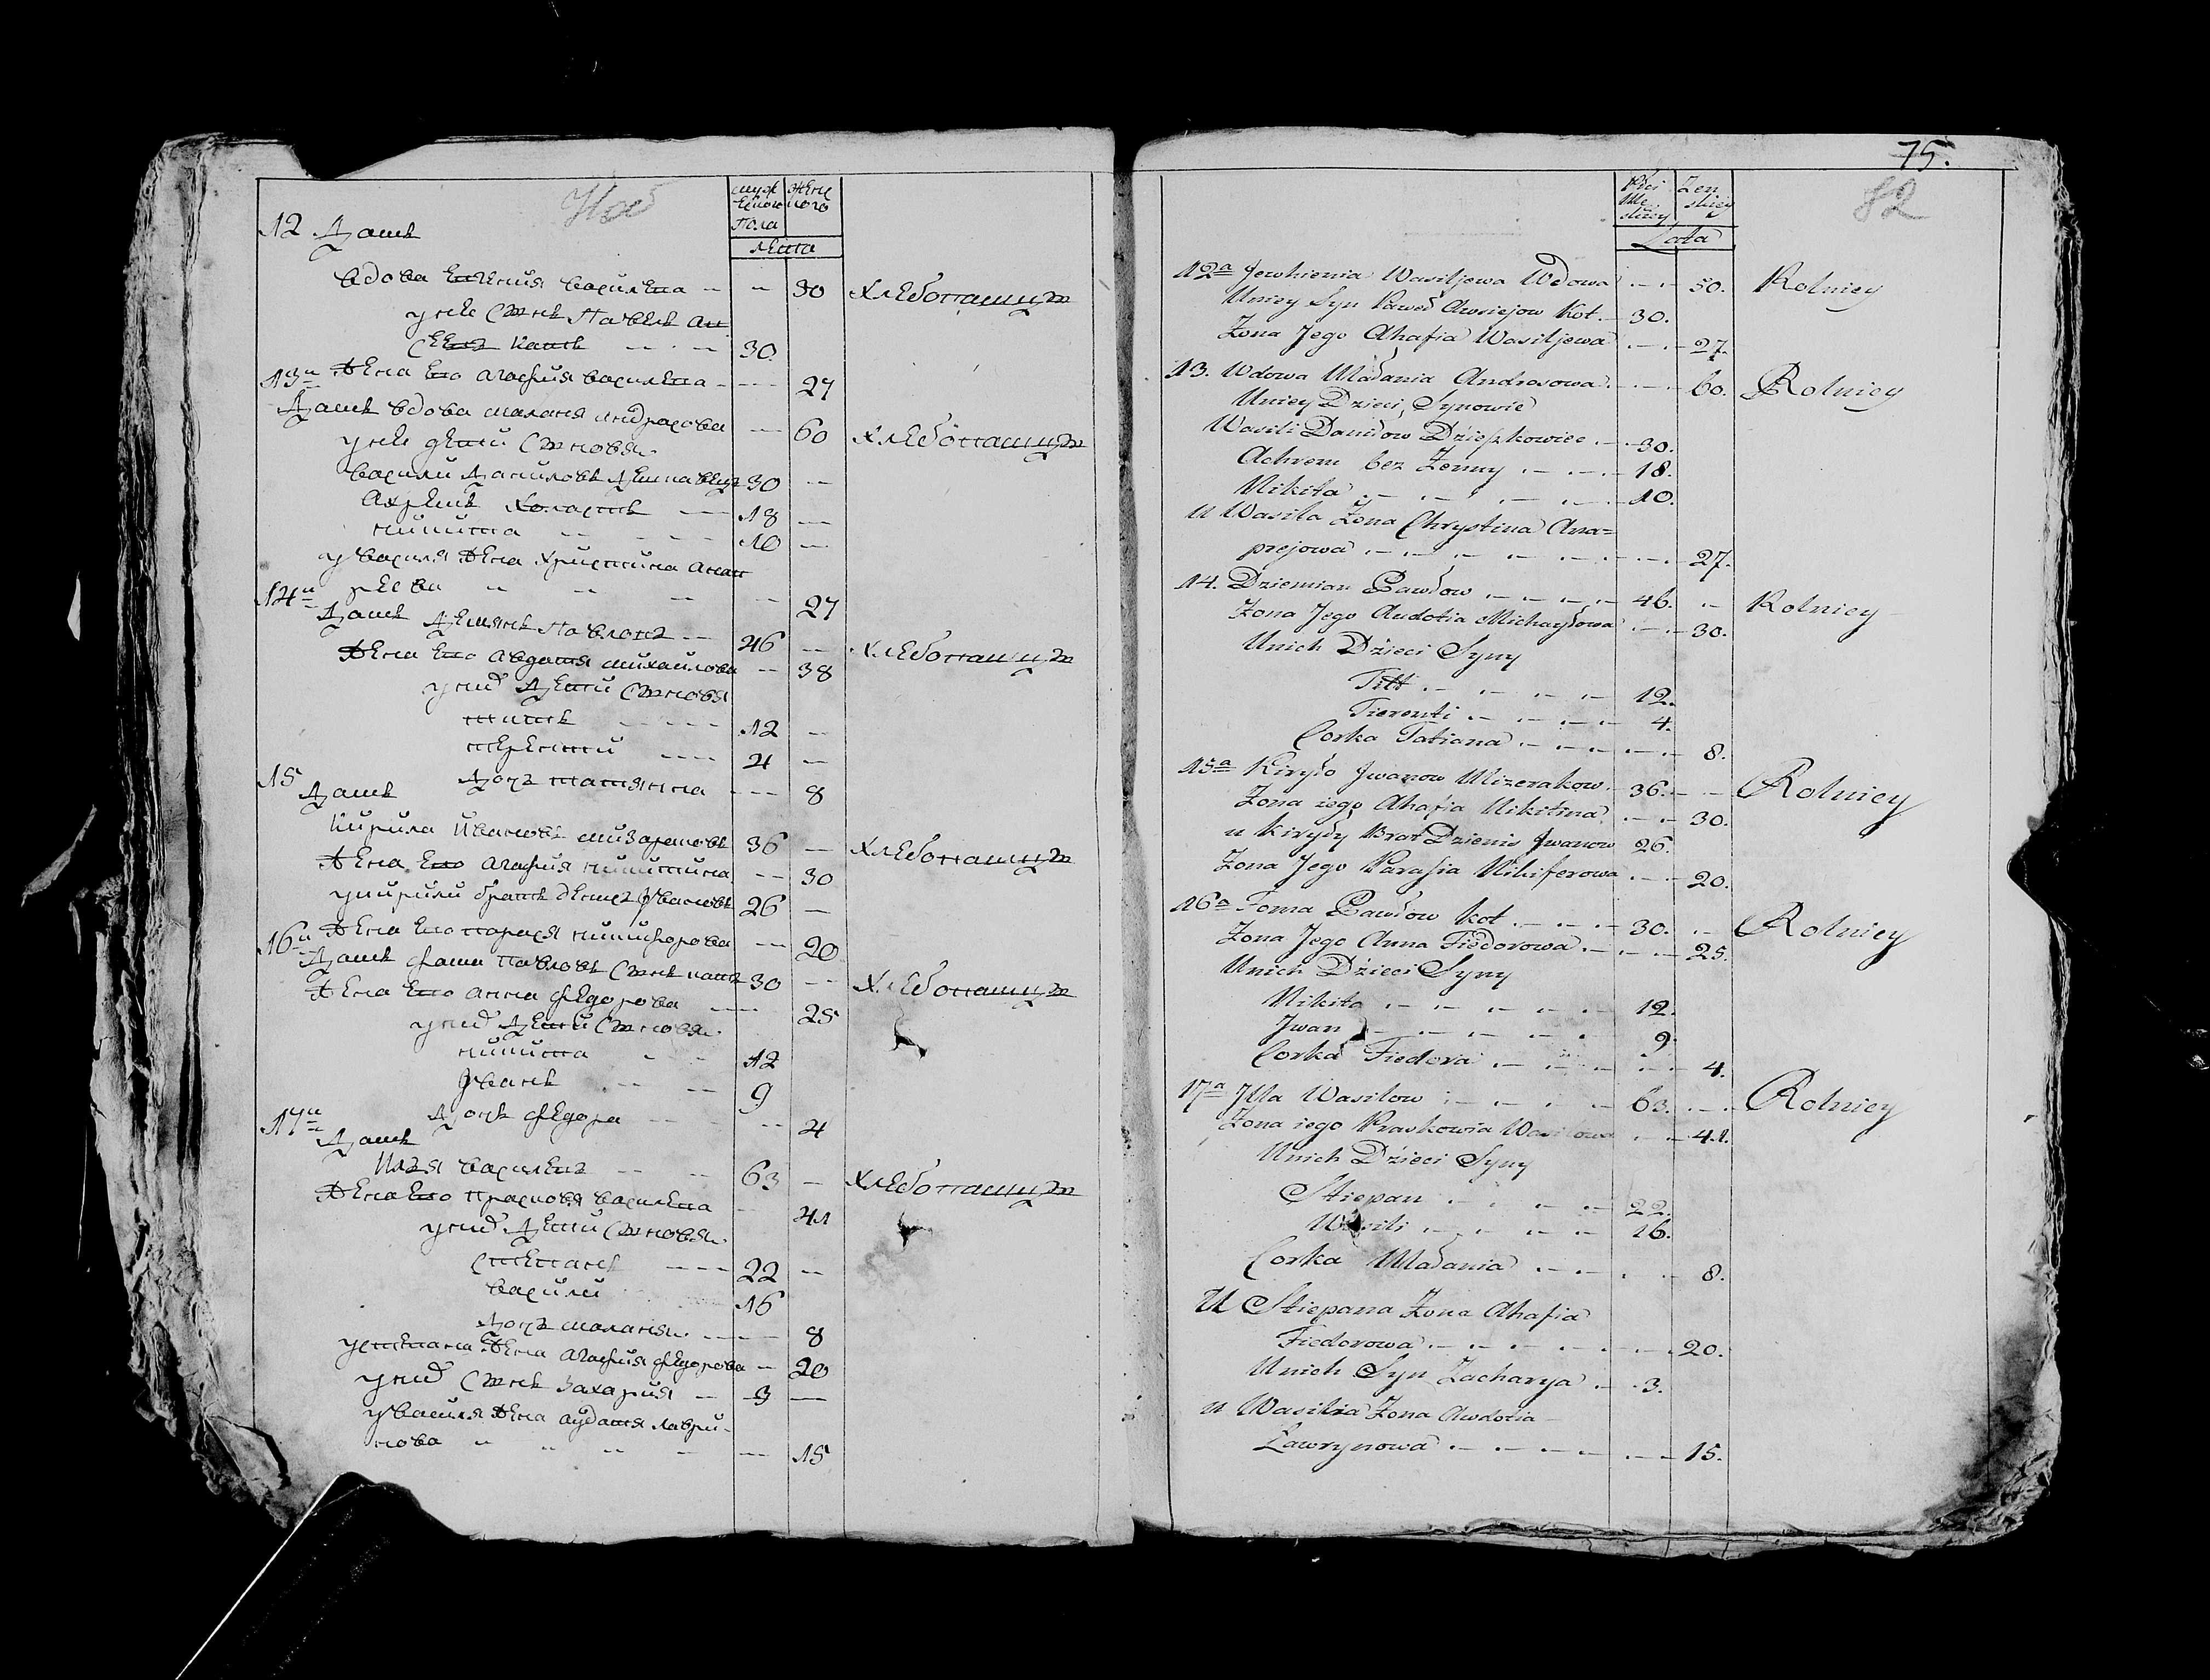 12 Дамъ
мужескаго пола
женского
лета
вдова Евгения василева 30 хлебопашцы
у нее сынъ Павелъ ав
сеевъ катъ 30
13й жена ево агафия василева 27
Дамъ вдова малания андросова 60 хлебопашцы
у нее дети сыновя
василий Даниловъ 30
ахремъ холастъ 18
никита 10
у василя жена христина анап
реева 27
14й Дамъ Демянъ Павловъ 46 хлебопашцы
жена ево авдотя михаилова 38
у них дети сыновя
титъ 12
терентий 4
дочъ татянна 8
15 Дамъ
Кирила Ивановъ мизараковъ 36 хлебопашцы
жена ево агафия никитина 30
у кирили братъ денисъ Ивановъ 26
жена ево парася никифорова 20
16й Дамъ фама павловъ сынъ катъ 30 хлебопашцы
жена ево анна федорова 25
у них дети сыновя
никита 12
Иванъ 9
дочъ федора 4
17й Дамъ
Илья василевъ 63 хлебопашцы
жена ево прасковя василева 41
у них дети сыновя
степанъ 22
василий 16
дочъ малания 8
у степана жена агафия федорова 20
у них сынъ захария 3
у василя жена аудотя лаври-
нова 15
75.
82
Płci Męskiey
Żenskiey
Lata
12a Jewhienia Wasiljewa Wdowa 50. Rolniey
Uniey Syn Paweł Awsiejow Kot 30.
Zona Jego Ahafia Wasiljewa 27.
13. Wdowa Małania Androsowa 60. Rolniey
Uniey Dzieci, Synowie
Wasili Daniłow Dzieszkowiec 30.
Achrem bez Zenny 18.
Nikita 10.
u Wasila Zona Chrystina Ana=
prejowa 27.
14. Dziemian Pawłow 46. Rolniey
Zona Jego Audotia Michayłowa 30.
Unich Dzieci Syny
Titt 12.
Tierenti 4.
Corka Tatiana 8.
15a Kiryło Jwanow Mizerakow 36. Rolniey
Zona iego Ahafia Nikitina 30.
u Kiryły Brat Dzienis Jwanow 26.
Zona Jego Parasia Nikiferowa 20.
16a Foma Pawłow Kot 30. Rolniey
Zona Jego Anna Fiedorowa 25.
Unich Dzieci Syny
Nikita 12.
Jwan 9.
Corka Fiedora 4.
17a Jlla Wasilow 63. Rolniey
Zona iego Praskowia Wasilowa 41.
Unich Dzieci Syny
Stiepan 22.
Wasili 16.
Corka Małania 8.
U Stiepana Zona Ahafia
Fiedorowa 20.
Unich Syn Zacharya 3.
u Wasilia Zona Awdotia
Ławrynowa 15.